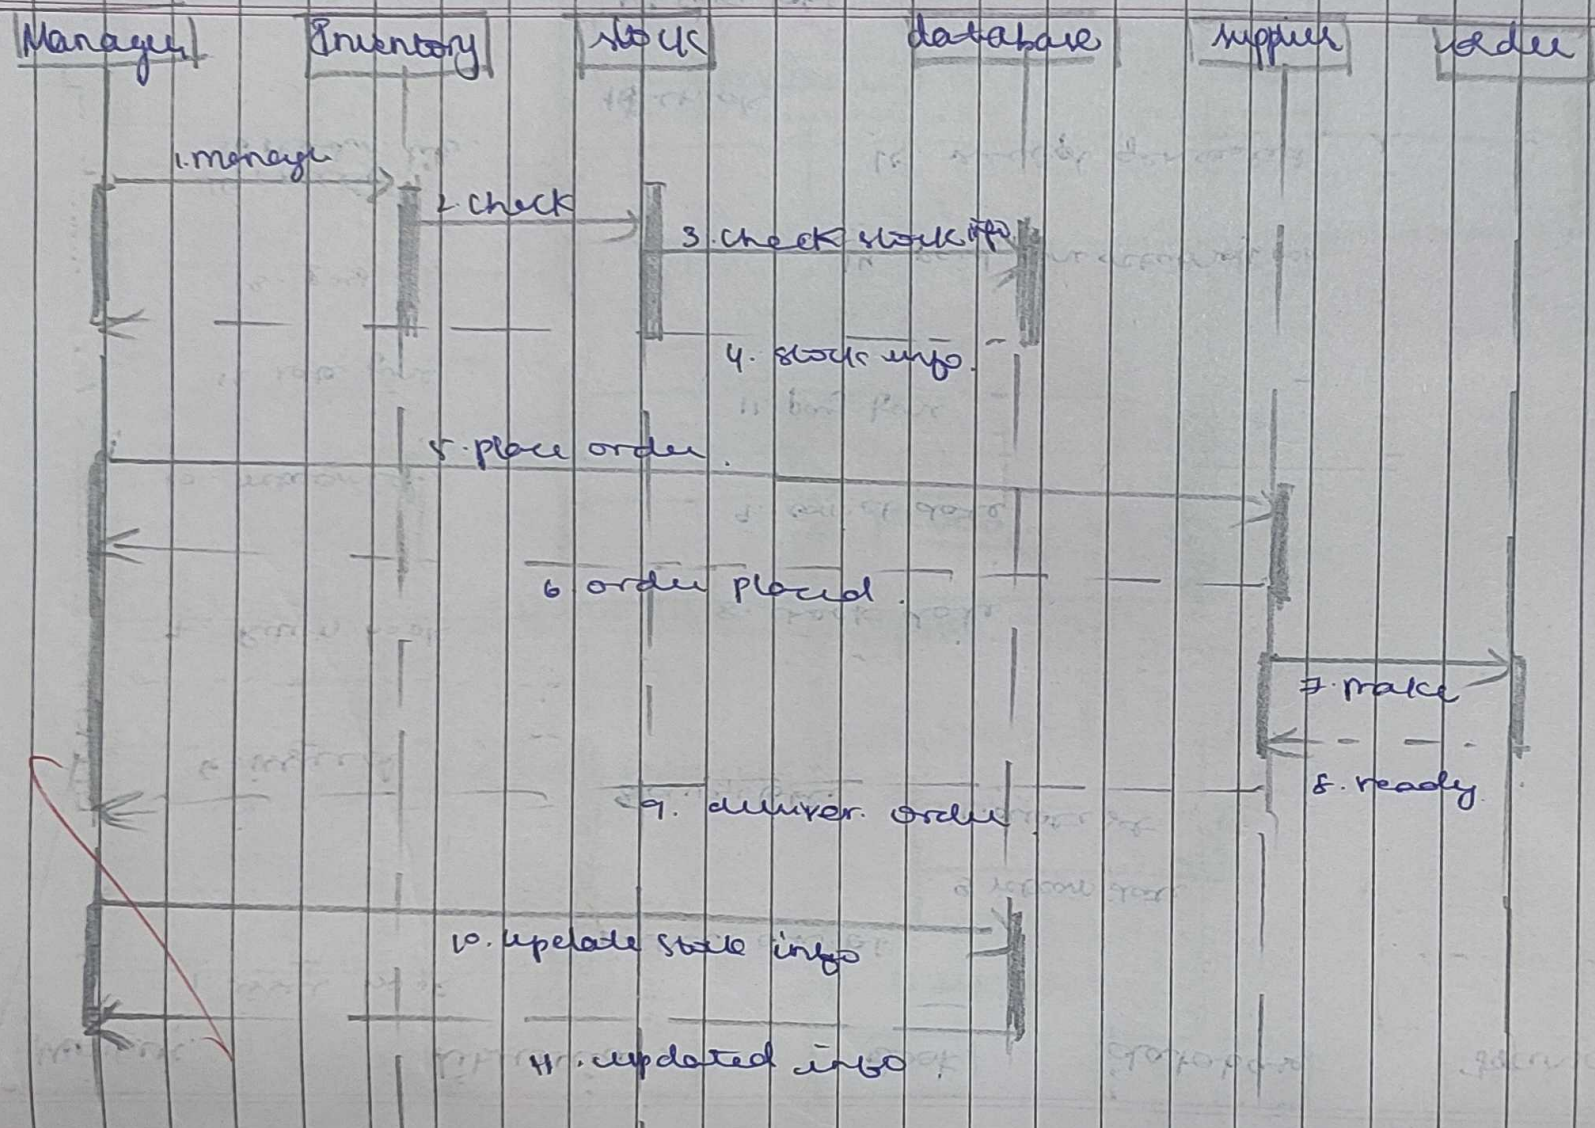 Manager Inventory stock database supplier order
1. manage
2. check
3. check stock info.
4. stock info.
5. place order.
6 order placed.
7. make
8. ready.
9. deliver. order.
10. update stock info
11. updated info